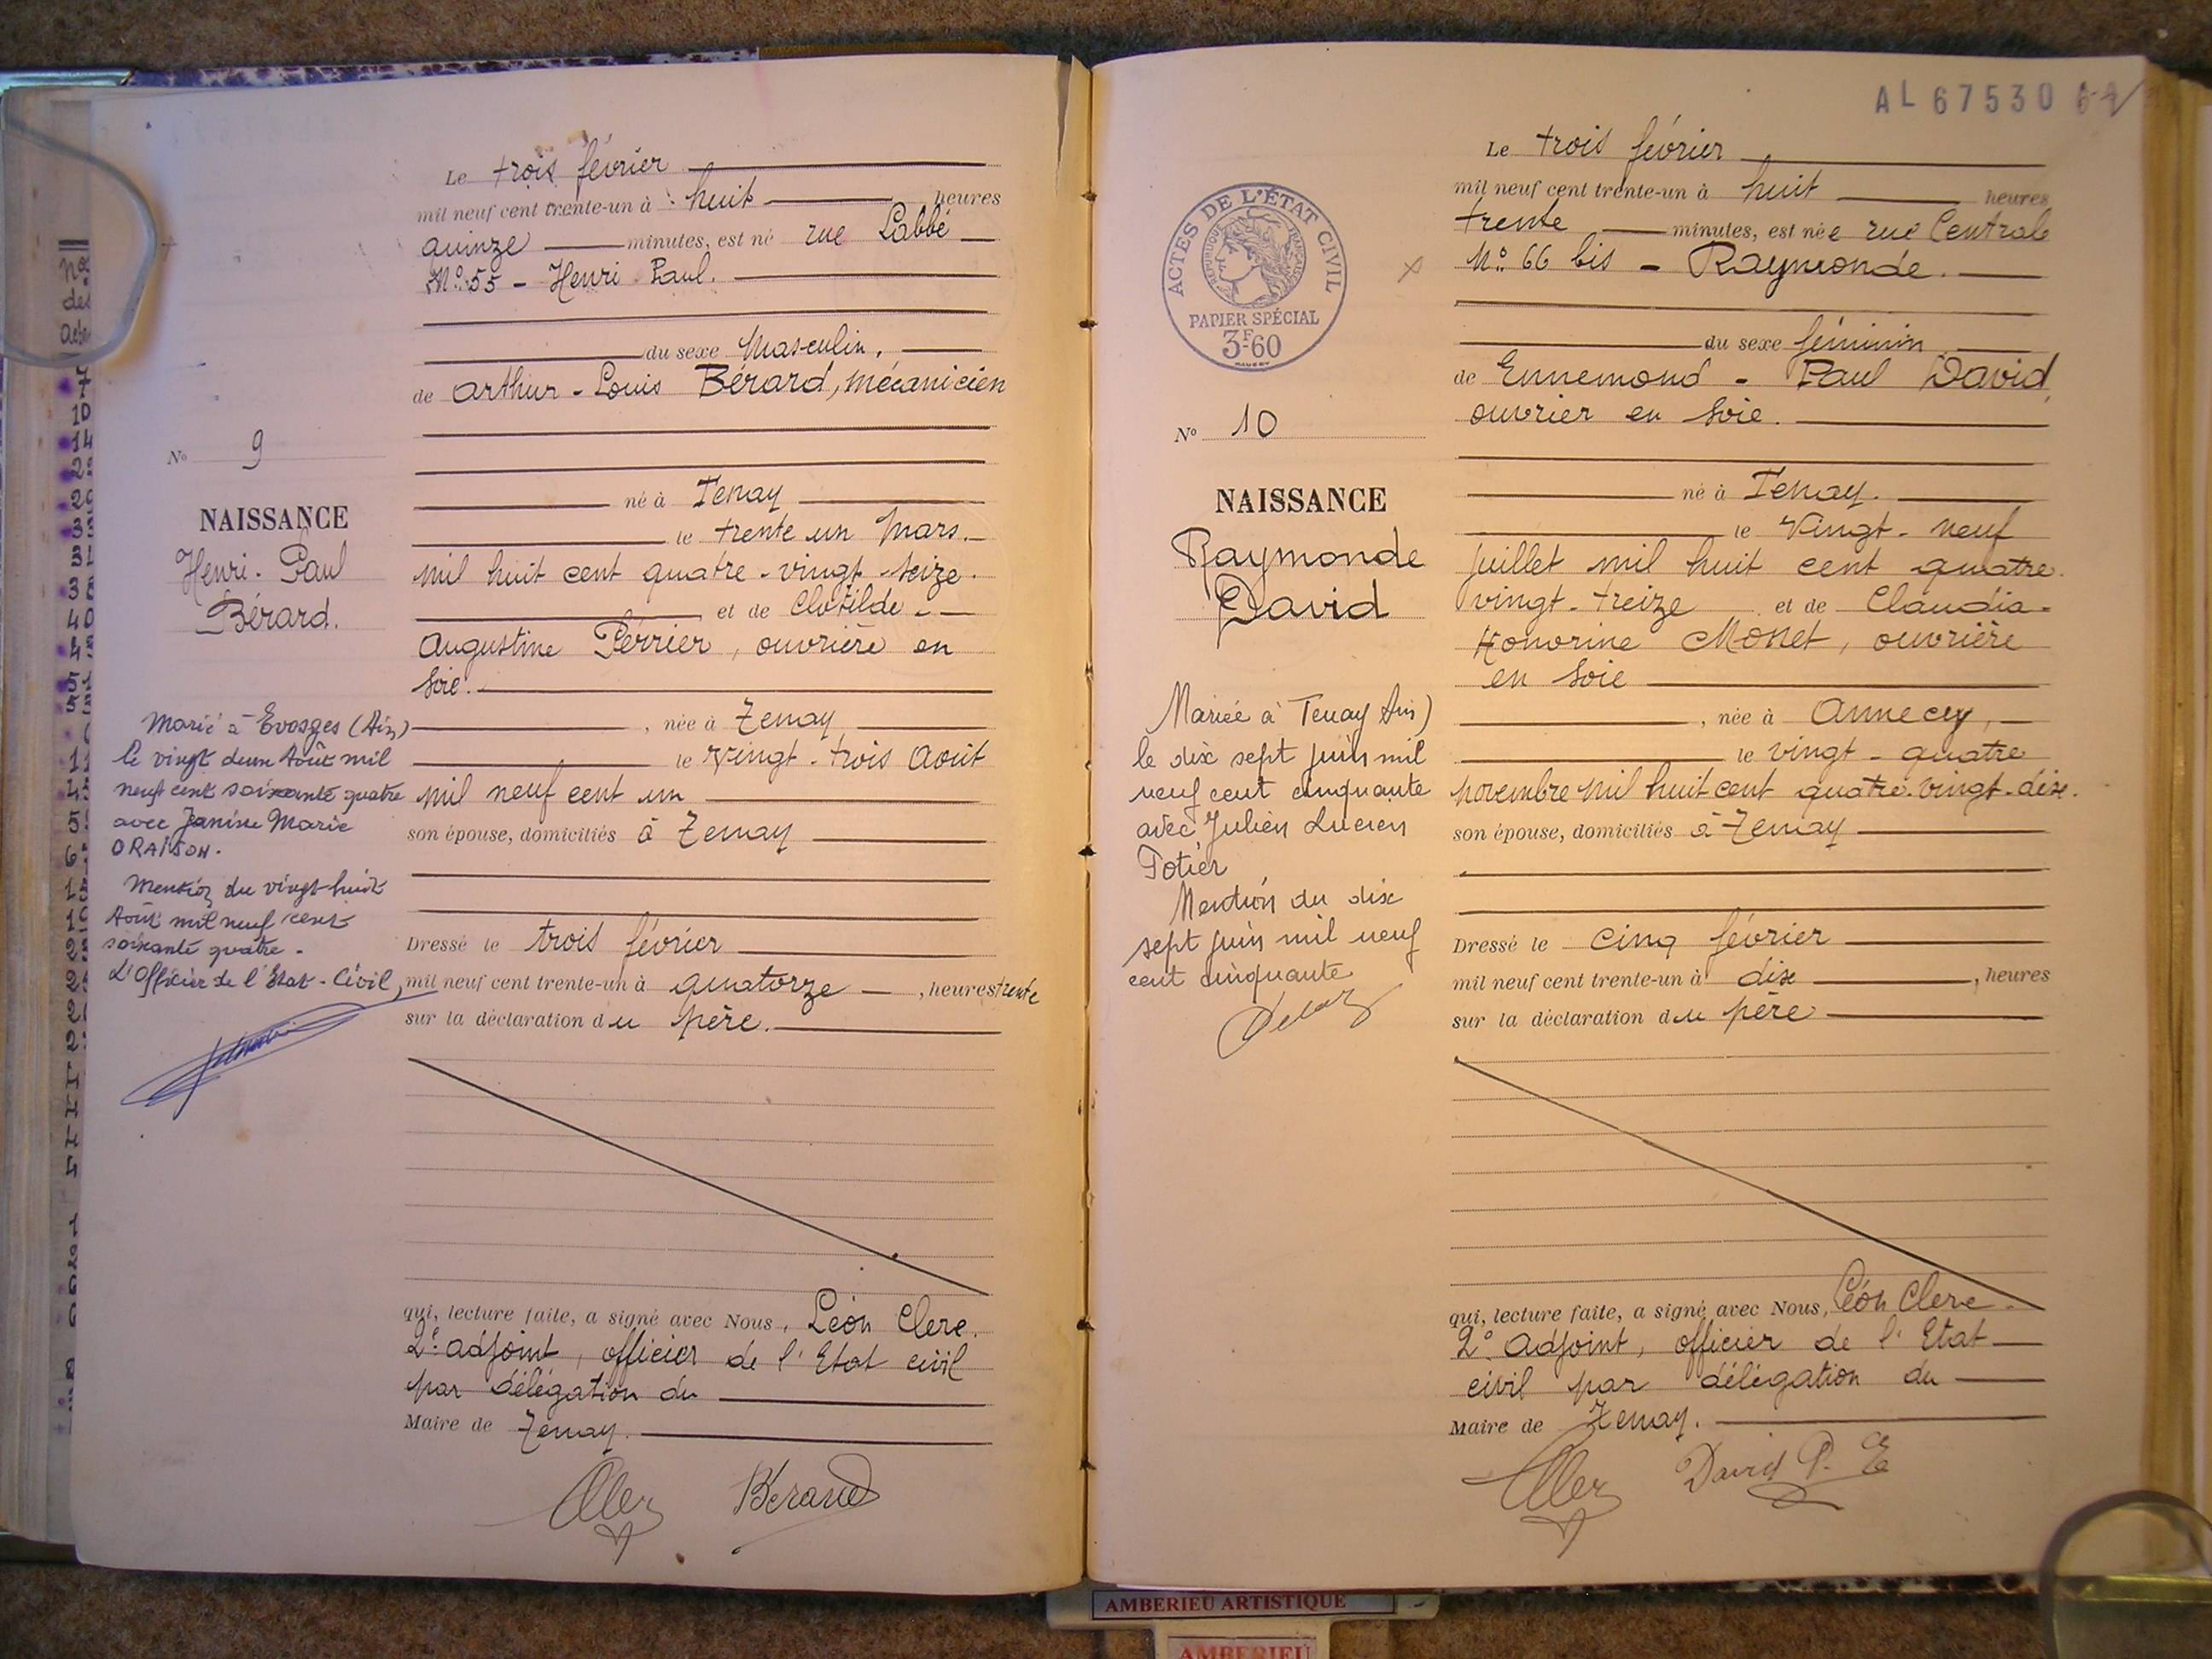 Le trois février
mil neuf cent trente-un à huit heures
quinze minutes, est né rue Labbé
N° 55 - Henri Paul.
du sexe Masculin.
de Arthur-Louis Bérard, mécanicien
N° 9
né à Tenay
NAISSANCE
le trente un Mars.
Henri-Paul
mil huit cent quatre-vingt-seize.
Bérard.
et de Clotilde -
Augustine Perrier, ouvrière en
soie.
Marié à Evosges (Ain)
, née à Tenay
le vingt deux Août mil
le Vingt-trois Août
neuf cent soixante quatre
mil neuf cent un
avec Janine Marie
son épouse, domiciliés à Tenay
ORAISON.
Mention du vingt-huit
Août mil neuf cent
soixante quatre -
Dressé le trois février
L'Officier de l'Etat-Civil,
mil neuf cent trente-un à quatorze, heures trente
sur la déclaration du père.
qui, lecture faite, a signé avec Nous, Léon Clerc.
2e adjoint, officier de l'Etat civil
par délégation du
Maire de Tenay.
Bérard
AL 67530
Le trois février
mil neuf cent trente-un à huit heures
trente minutes, est née rue Centrale
N° 66 bis - Raymonde.
ACTES DE L'ÉTAT CIVIL
RÉPUBLIQUE FRANÇAISE
PAPIER SPÉCIAL
3F60
du sexe féminin
de Ennemond - Paul David,
ouvrier en soie.
N° 10
né à Tenay.
NAISSANCE
le Vingt-neuf
Raymonde
juillet mil huit cent quatre
David
vingt-treize et de Claudia-
Honorine Monet, ouvrière
en soie
Mariée à Tenay Ain)
, née à Annecy,
le dix sept juin mil
le vingt-quatre
neuf cent cinquante
novembre mil huit cent quatre-vingt-dix.
avec Julien Lucien
son épouse, domiciliés à Tenay
Potier
Mention du dix
sept juin mil neuf
Dressé le cinq février
cent cinquante
mil neuf cent trente-un à dix, heures
sur la déclaration du père
qui, lecture faite, a signé avec Nous, Léon Clerc.
2e Adjoint, officier de l'Etat
civil par délégation du
Maire de Tenay.
David P. E
AMBERIEU ARTISTIQUE
AMBERIEU